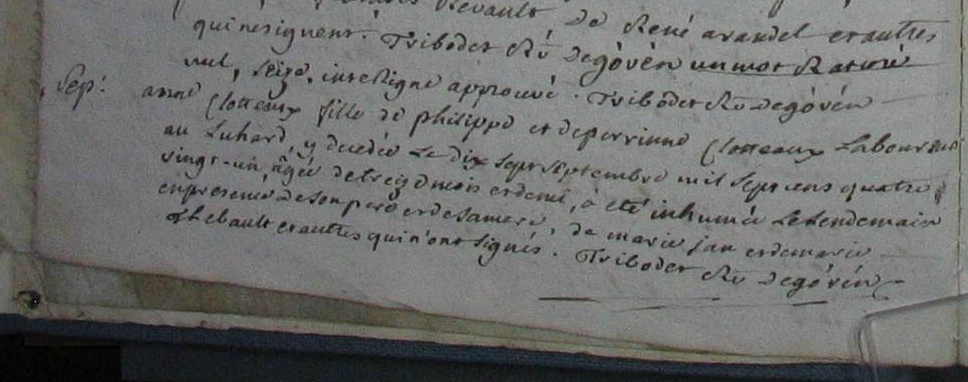 Rebault de René avandel et autres
qui ne signent. Tribodet Rr de gövën un mot Raturé
nul, Seize, interligne approuvé. Tribodet Rr de gövën
Sep: anne Clotteaux fille de philippe et de perrinne Clotteaux Laboureurs
au Luhard, y decedée Le dix Sept Septembre mil Sept cens quatre
vingt-un, âgée de treize mois et demi, a été inhumée Le Lendemain
en presence de Son pere et de Sa mere, de marie jan et de marie
Thebault et autres qui n'ont Signés. Tribodet Rr de gövën